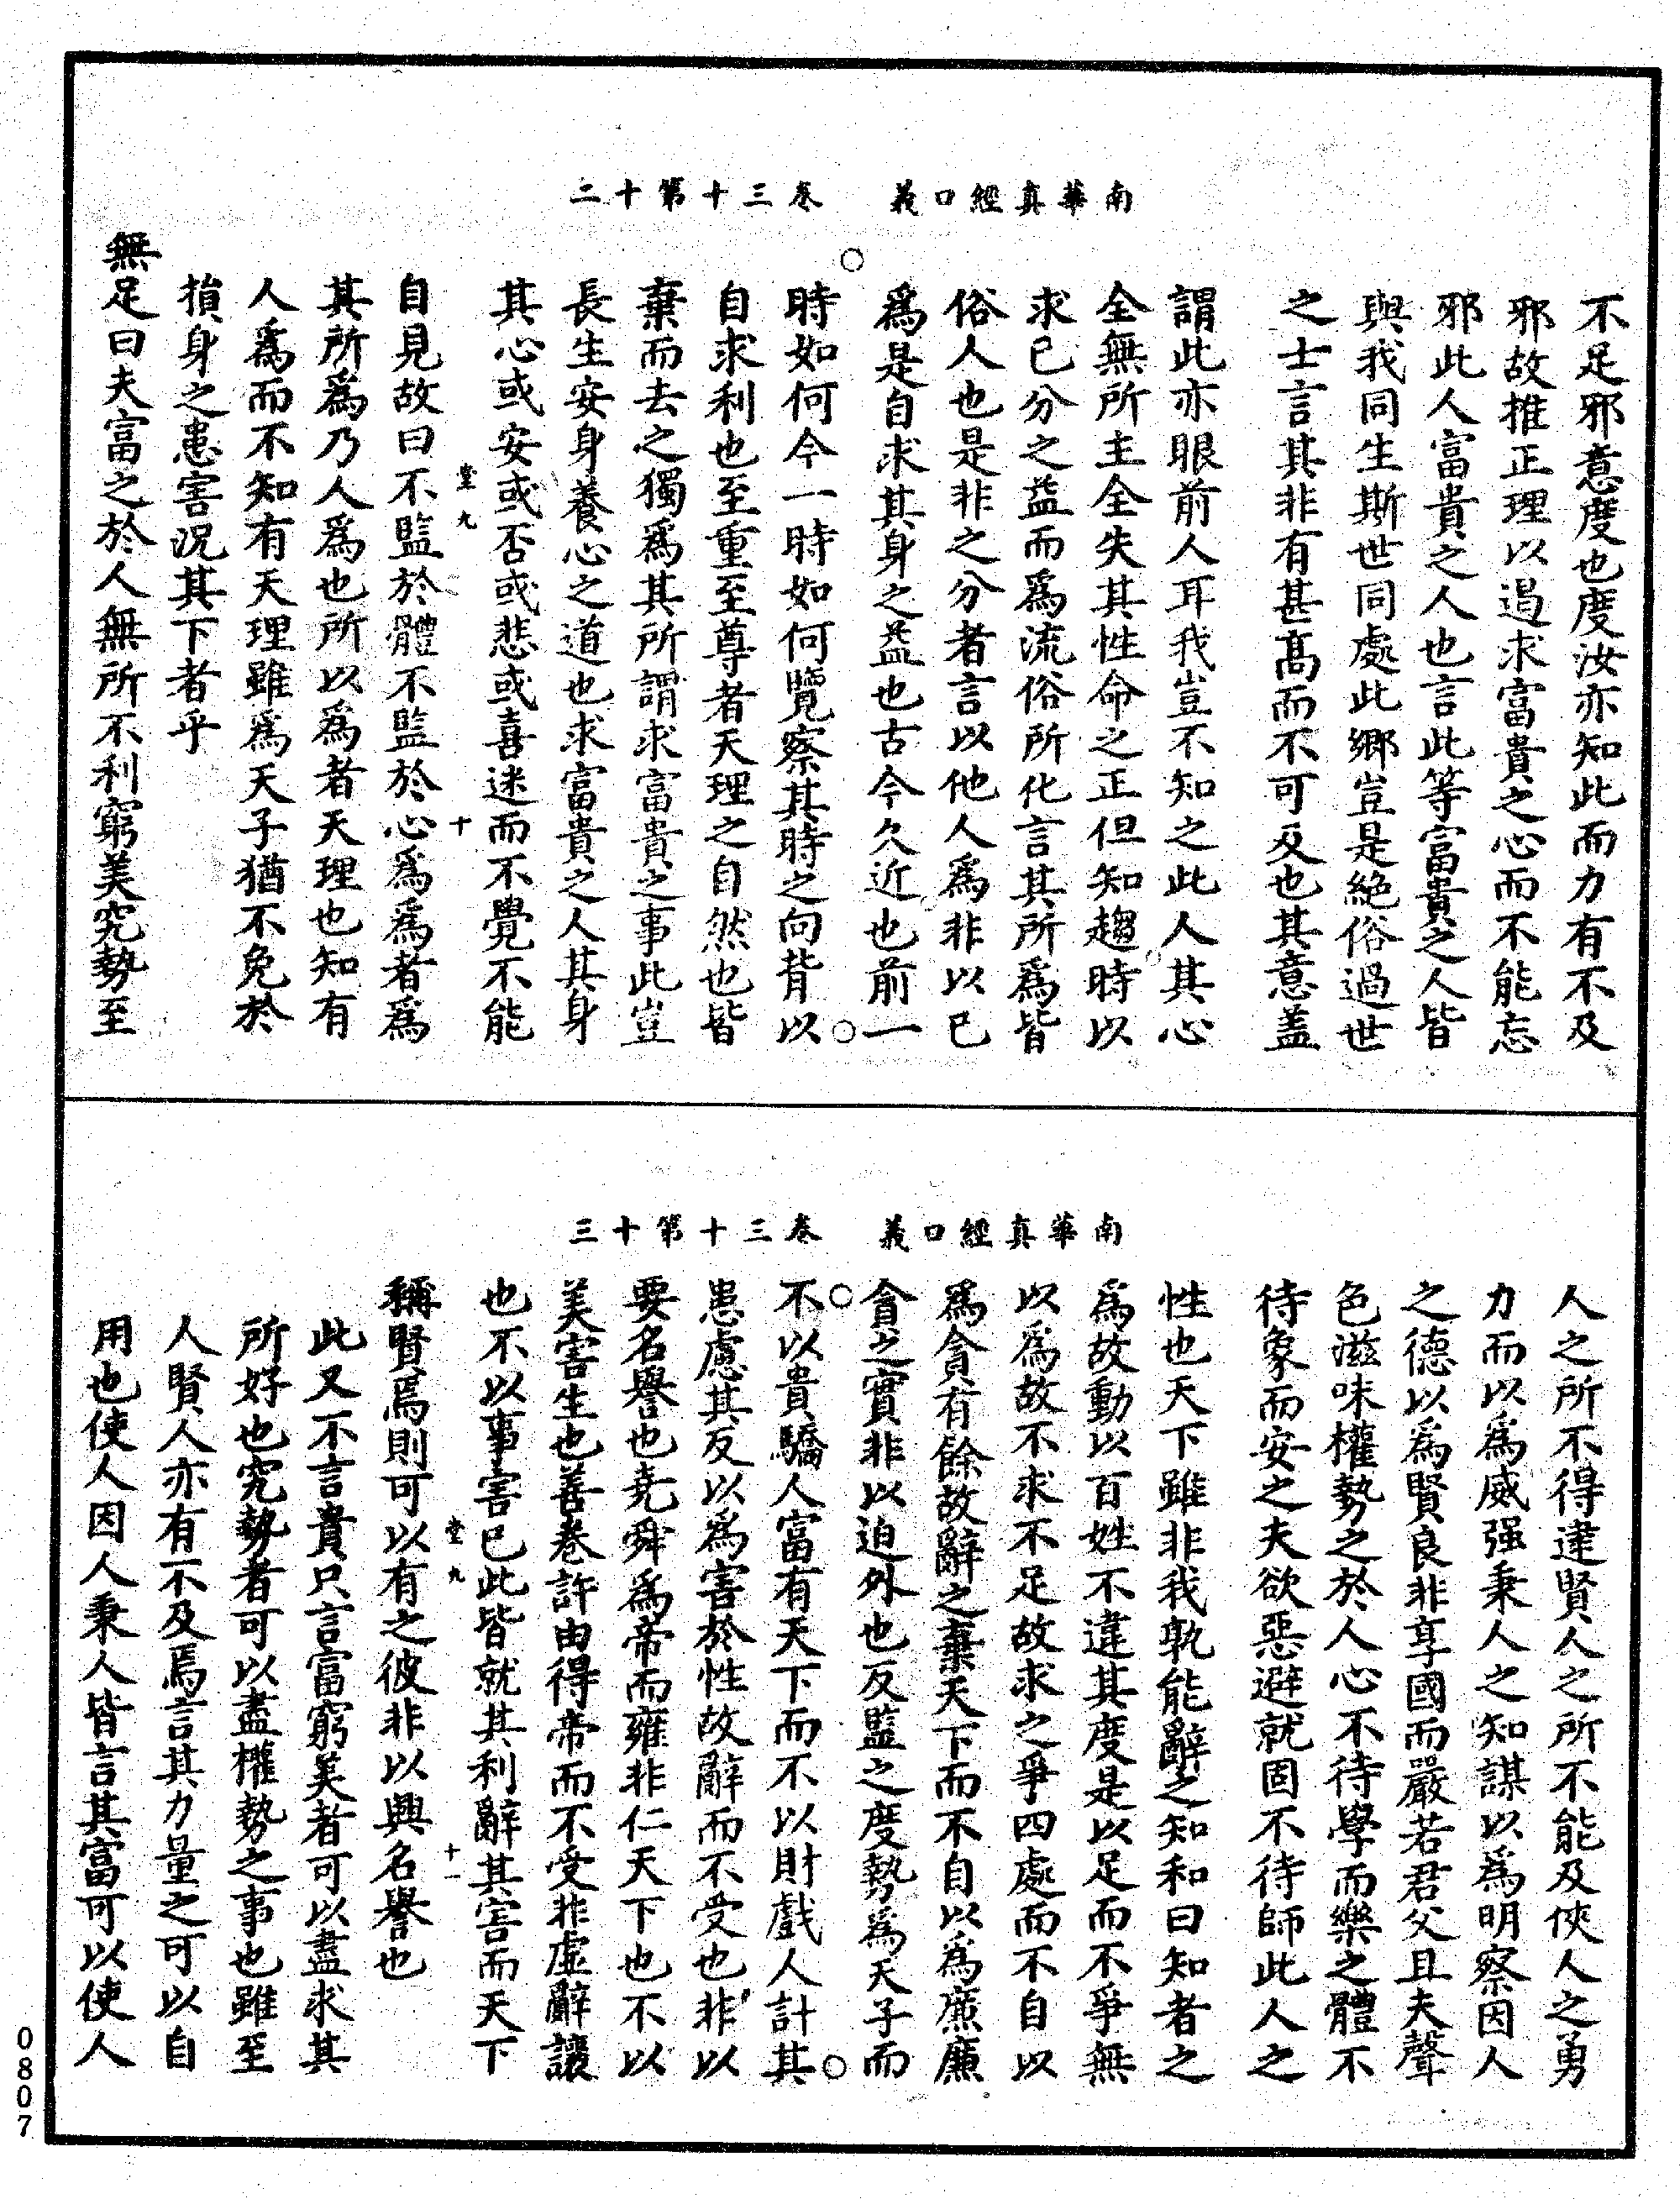 南華真經口義　卷三十第十二
不足邪意度也度汝亦知此而力有不及
邪故推正理以過求富貴之心而不能忘
邪此人富貴之人也言此等富貴之人皆
與我同生斯世同處此鄉豈是絕俗過世
之士言其非有甚高而不可及也其意蓋
謂此亦眼前人耳我豈不知之此人其心
全無所主全失其性命之正但知趨時以
求己分之益而為流俗所化言其所為皆
俗人也是非之分者言以他人為非以己
為是自求其身之益也古今久近也前一
時如何今一時如何覽察其時之向背以
自求利也至重至尊者天理之自然也皆
棄而去之獨為其所謂求富貴之事此豈
長生安身養心之道也求富貴之人其身
其心或安或否或悲或喜迷而不覺不能
堂九　十
自見故曰不監於體不監於心為為者為
其所為乃人為也所以為者天理也知有
人為而不知有天理雖為天子猶不免於
損身之患害況其下者乎
無足曰夫富之於人無所不利窮美究勢至
南華真經口義　卷三十第十三
人之所不得逮賢人之所不能及俠人之勇
力而以為威强秉人之知謀以為明察因人
之德以為賢良非享國而嚴若君父且夫聲
色滋味權勢之於人心不待學而樂之體不
待象而安之夫欲惡避就固不待師此人之
性也天下雖非我孰能辭之知和曰知者之
為故動以百姓不違其度是以足而不爭無
以為故不求不足故求之爭四處而不自以
為貪有餘故辭之棄天下而不自以為廉廉
貪之實非以迫外也反監之度勢為天子而
不以貴驕人富有天下而不以財戲人計其
患慮其反以為害於性故辭而不受也非以
要名譽也堯舜為帝而雍非仁天下也不以
美害生也善卷許由得帝而不受非虛辭讓
也不以事害己此皆就其利辭其害而天下
堂九　十一
稱賢焉則可以有之彼非以興名譽也
此又不言貴只言富窮美者可以盡求其
所好也究勢者可以盡權勢之事也雖至
人賢人亦有不及焉言其力量之可以自
用也使人因人秉人皆言其富可以使人
0807